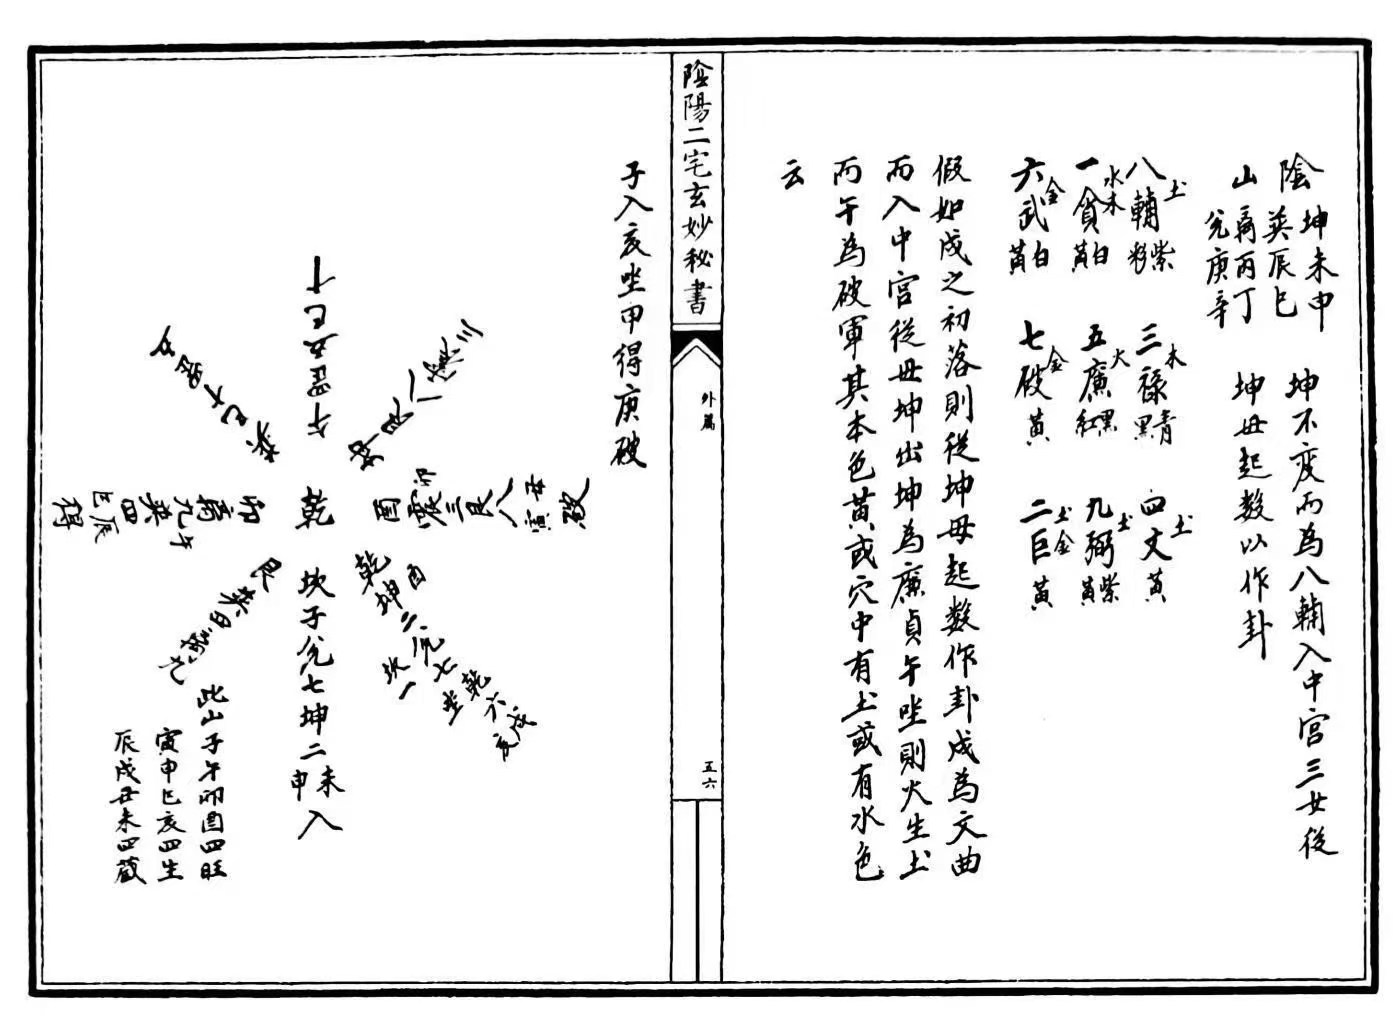 陰 坤未申 坤不變而為八輔入中宮三女從
巽辰巳
山 离丙丁 坤母起數以作卦
兌庚辛
八輔 土 紫 三祿 木 青黑 四文 土 黃
一貪 水木 白黃 五廉 火 黑紅 九弼 土 紫黃
六武 金 白黃 七破 金 黃 二巨 土金 黃
假如戌之初落則從坤母起数作卦戌為文曲
而入中宮從母坤出坤為廉貞午坐則火生土
而午為破軍其本色黃或穴中有土或有水色
云
陰陽二宅玄妙秘書
外篇
五六
子入亥坐甲得庚破
乾
坎子兌七坤二未申入
酉乾坤二兌七乾六戌亥
坎一坐
卯震三艮八丑寅破
午
五巳
卯离九巽四辰巳得
午
艮
九
此山子午卯酉四旺
寅申巳亥四生
辰戌丑未四藏